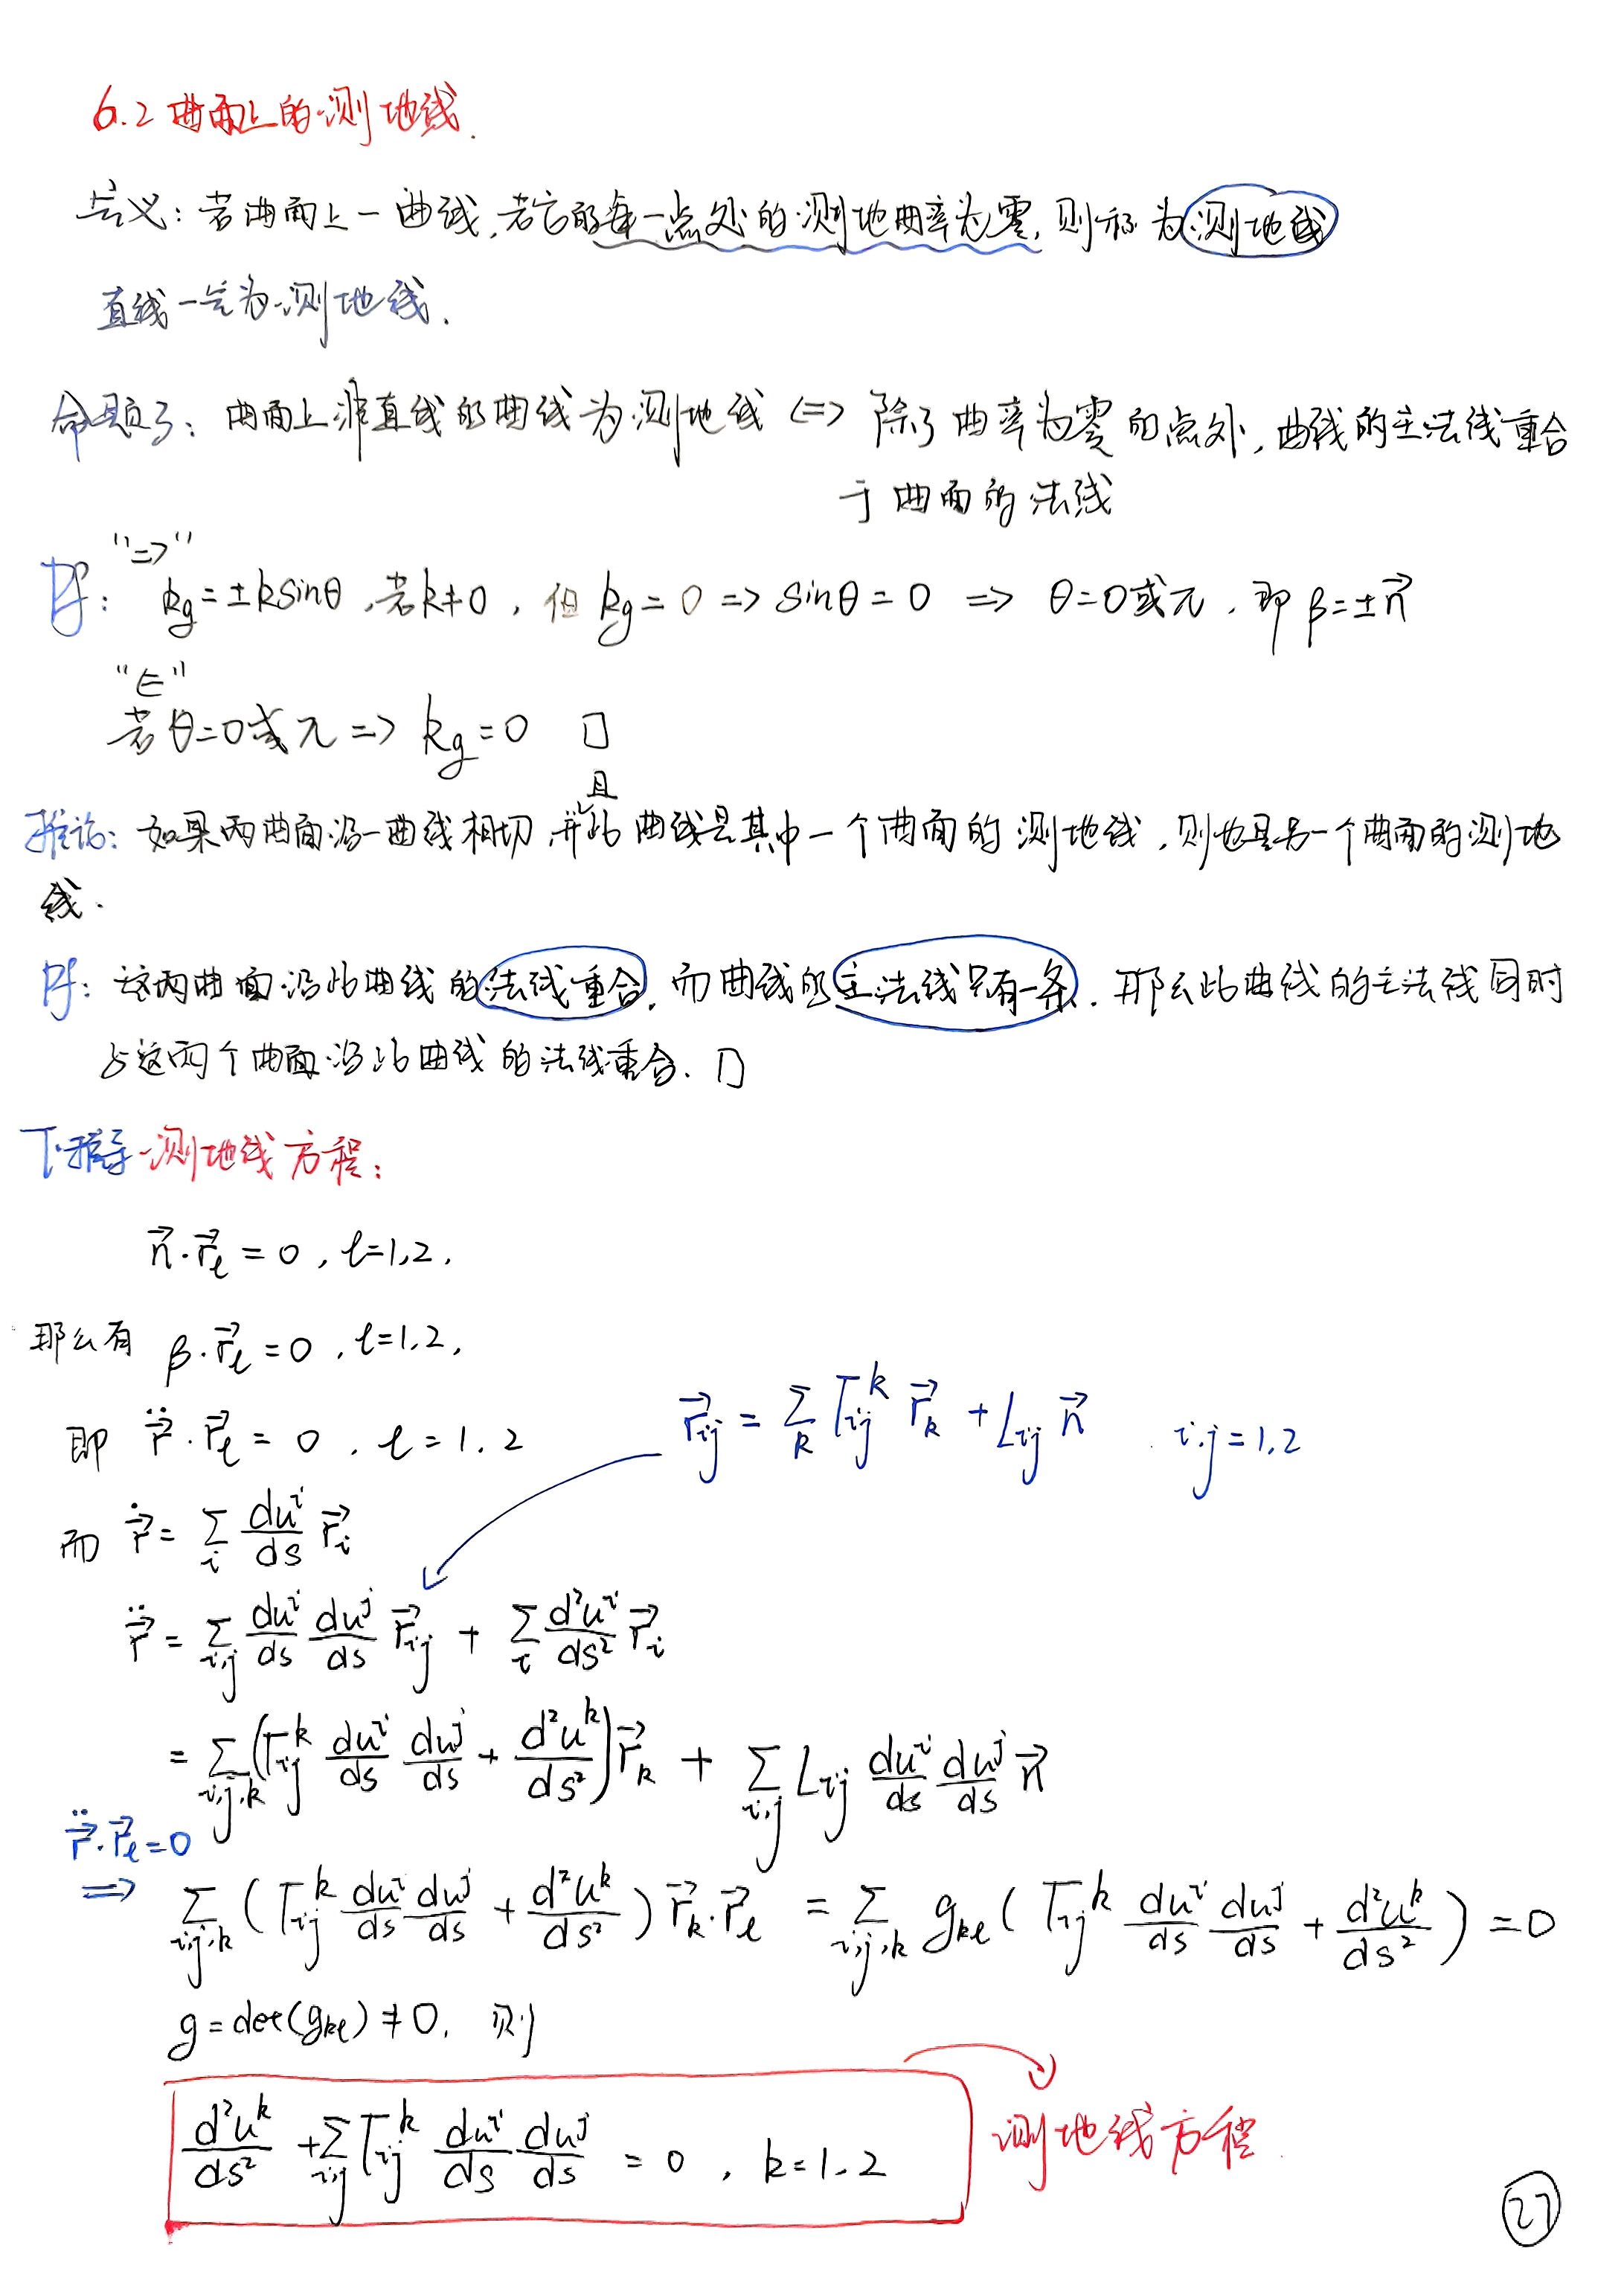 6.2 曲面上的测地线.
定义: 若曲面上一曲线,若它的每一点处的测地曲率为零,则称为测地线
直线一定为测地线.
命题3: 曲面上非直线的曲线为测地线 <=> 除了曲率为零的点处,曲线的主法线重合
于曲面的法线
"=>"
Pf: kg=±ksinθ,若k≠0,但kg=0 => sinθ=0 => θ=0或π,即β=±n⃗
"<="
若θ=0或π => kg=0 □
且
推论: 如果两曲面沿一曲线相切,并此曲线是其中一个曲面的测地线,则也是另一个曲面的测地
线.
Pf: 这两曲面沿此曲线的法线重合,而曲线的主法线只有一条.那么此曲线的主法线同时
与这两个曲面沿此曲线的法线重合. □
下推导测地线方程:
n⃗·r⃗_l = 0, l=1,2,
那么有 β·r⃗_l = 0, l=1,2,
r⃗_ij = Σ_k Γ_ij^k r⃗_k + L_ij n⃗ i,j=1,2
即 r⃗̈·r⃗_l = 0, l=1,2
而 r⃗̇ = Σ_i du^i/ds r⃗_i
r⃗̈ = Σ_i,j du^i/ds du^j/ds r⃗_ij + Σ_i d²u^i/ds² r⃗_i
= Σ_i,j,k (Γ_ij^k du^i/ds du^j/ds + d²u^k/ds²) r⃗_k + Σ_i,j L_ij du^i/ds du^j/ds n⃗
r⃗̈·r⃗_l=0
=> Σ_i,j,k (Γ_ij^k du^i/ds du^j/ds + d²u^k/ds²) r⃗_k·r⃗_l = Σ_i,j,k g_kl (Γ_ij^k du^i/ds du^j/ds + d²u^k/ds²) = 0
g=det(g_kl)≠0, 则
d²u^k/ds² + Σ_i,j Γ_ij^k du^i/ds du^j/ds = 0, k=1,2 测地线方程.
27